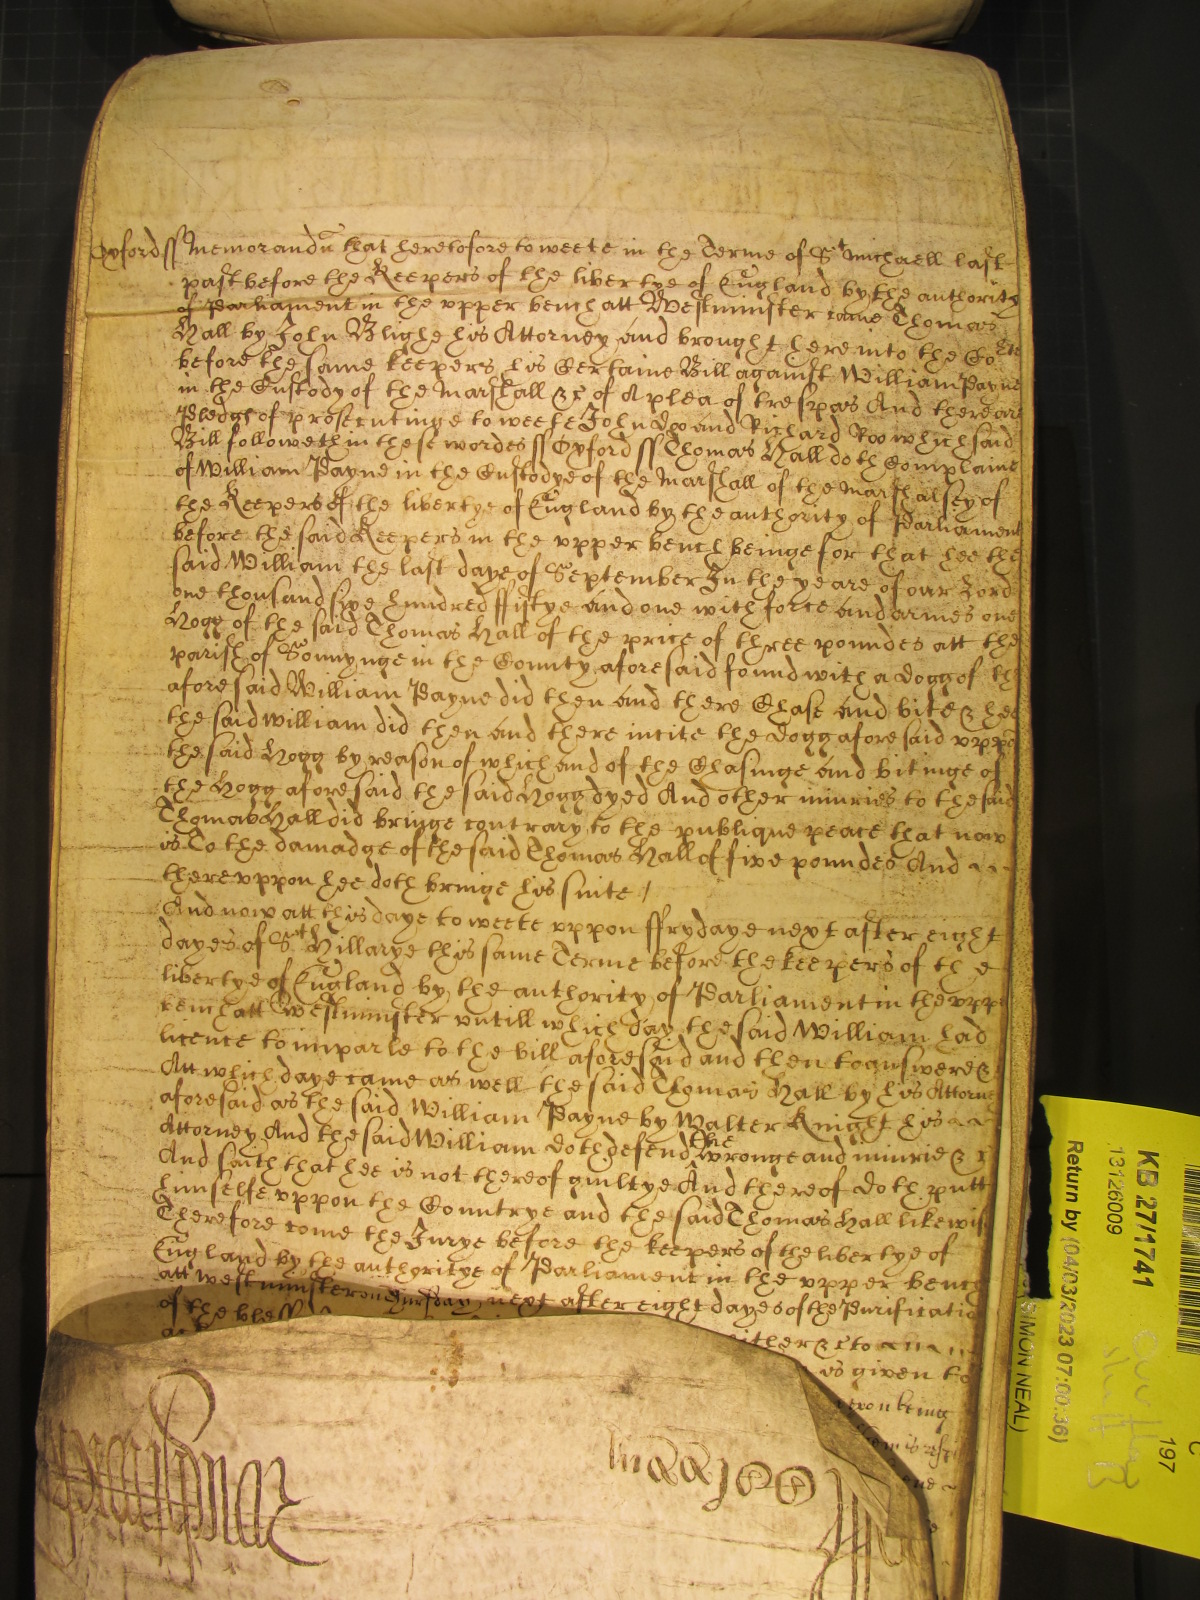 Oxford ss Memorandu that heretofore to weete in the Terme of St Michaell last
past before the Keepers of the libertye of England by the authority
of Parliament in the upper bench att Westminster came Thomas
Hall by John Blighe his Attorney and brought here into the Co
before the same keepers his Certaine Bill against William Payne
in the Custody of the Marshall &c of A plea of trespas And there are
Pledge of prosecutinge to weete John Doo and Richard Roo which said
Bill followeth in these wordes ss Oxford ss Thomas Hall doth Complaine
of William Payne in the Custodye of the Marshall of the Marshalsey of
the Keepers of the libertye of England by the authority of Parliament
before the said Keepers in the upper bench beinge for that hee the
said William the last daye of September In the yeare of our Lord
one thousand sixe hundred ffiftye and one with force and armes one
Hogg of the said Thomas Hall of the price of three poundes att the
parish of Sonnynge in the County aforesaid found with a dogg of th
aforesaid William Payne did then and there Chase and bite & hee
the said William did then and there incite the dogg aforesaid uppo
the said Hogg by reason of which and of the Chasinge and bitinge of
the Hogg aforesaid the said Hogg dyed And other iniuries to the said
Thomas Hall did bringe contrary to the publique peace that now
is To the damadge of the said Thomas Hall of five poundes And
thereuppon hee doth bringe his suite /
And now att this daye to weete uppon ffrydaye next after eight
dayes of St Hillarye this same Terme before the keepers of the
libertye of England by the authority of Parliament in the upp
bench att Westminster untill which day the said William had
licence to imparle to the bill aforesaid and then to answere &
Att which daye came as well the said Thomas Hall by his Attorne
aforesaid as the said William Payne by Walter Knight his
Attorney And the said William doth defend the wronge and iniurie &c
And saith that hee is not thereof guiltye And thereof doth putt
himselfe uppon the Countrye and the said Thomas Hall likewis
Therefore come the Jurye before the keepers of the libertye of
England by the authoritye of Parliament in the upper bench
att Westminster on next after eight dayes of the Purificatio
of the bless
either &c to
is given to
KB 27/1741
13126009
Return by (04/03/2023 07:00:36)
SIMON NEAL)
C
197